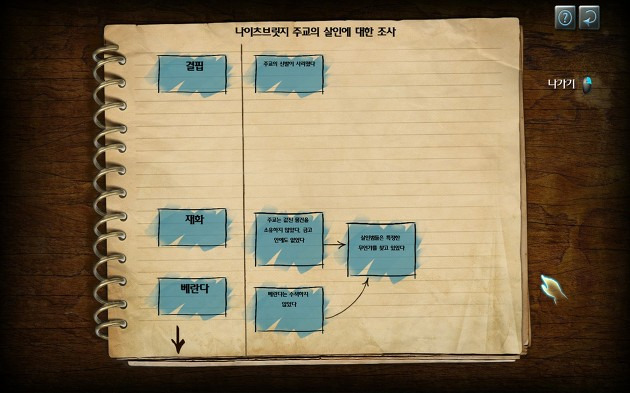 나이츠브릿지 주교의 살인에 대한 조사
나가기
결핍
주교의 신발이 사라졌다
재화
주교는 값진 물건을
소유하지 않았다. 금고
안에도 없었다
살인범들은 특정한
무언가를 찾고 있었다
베란다
베란다는 수색하지
않았다